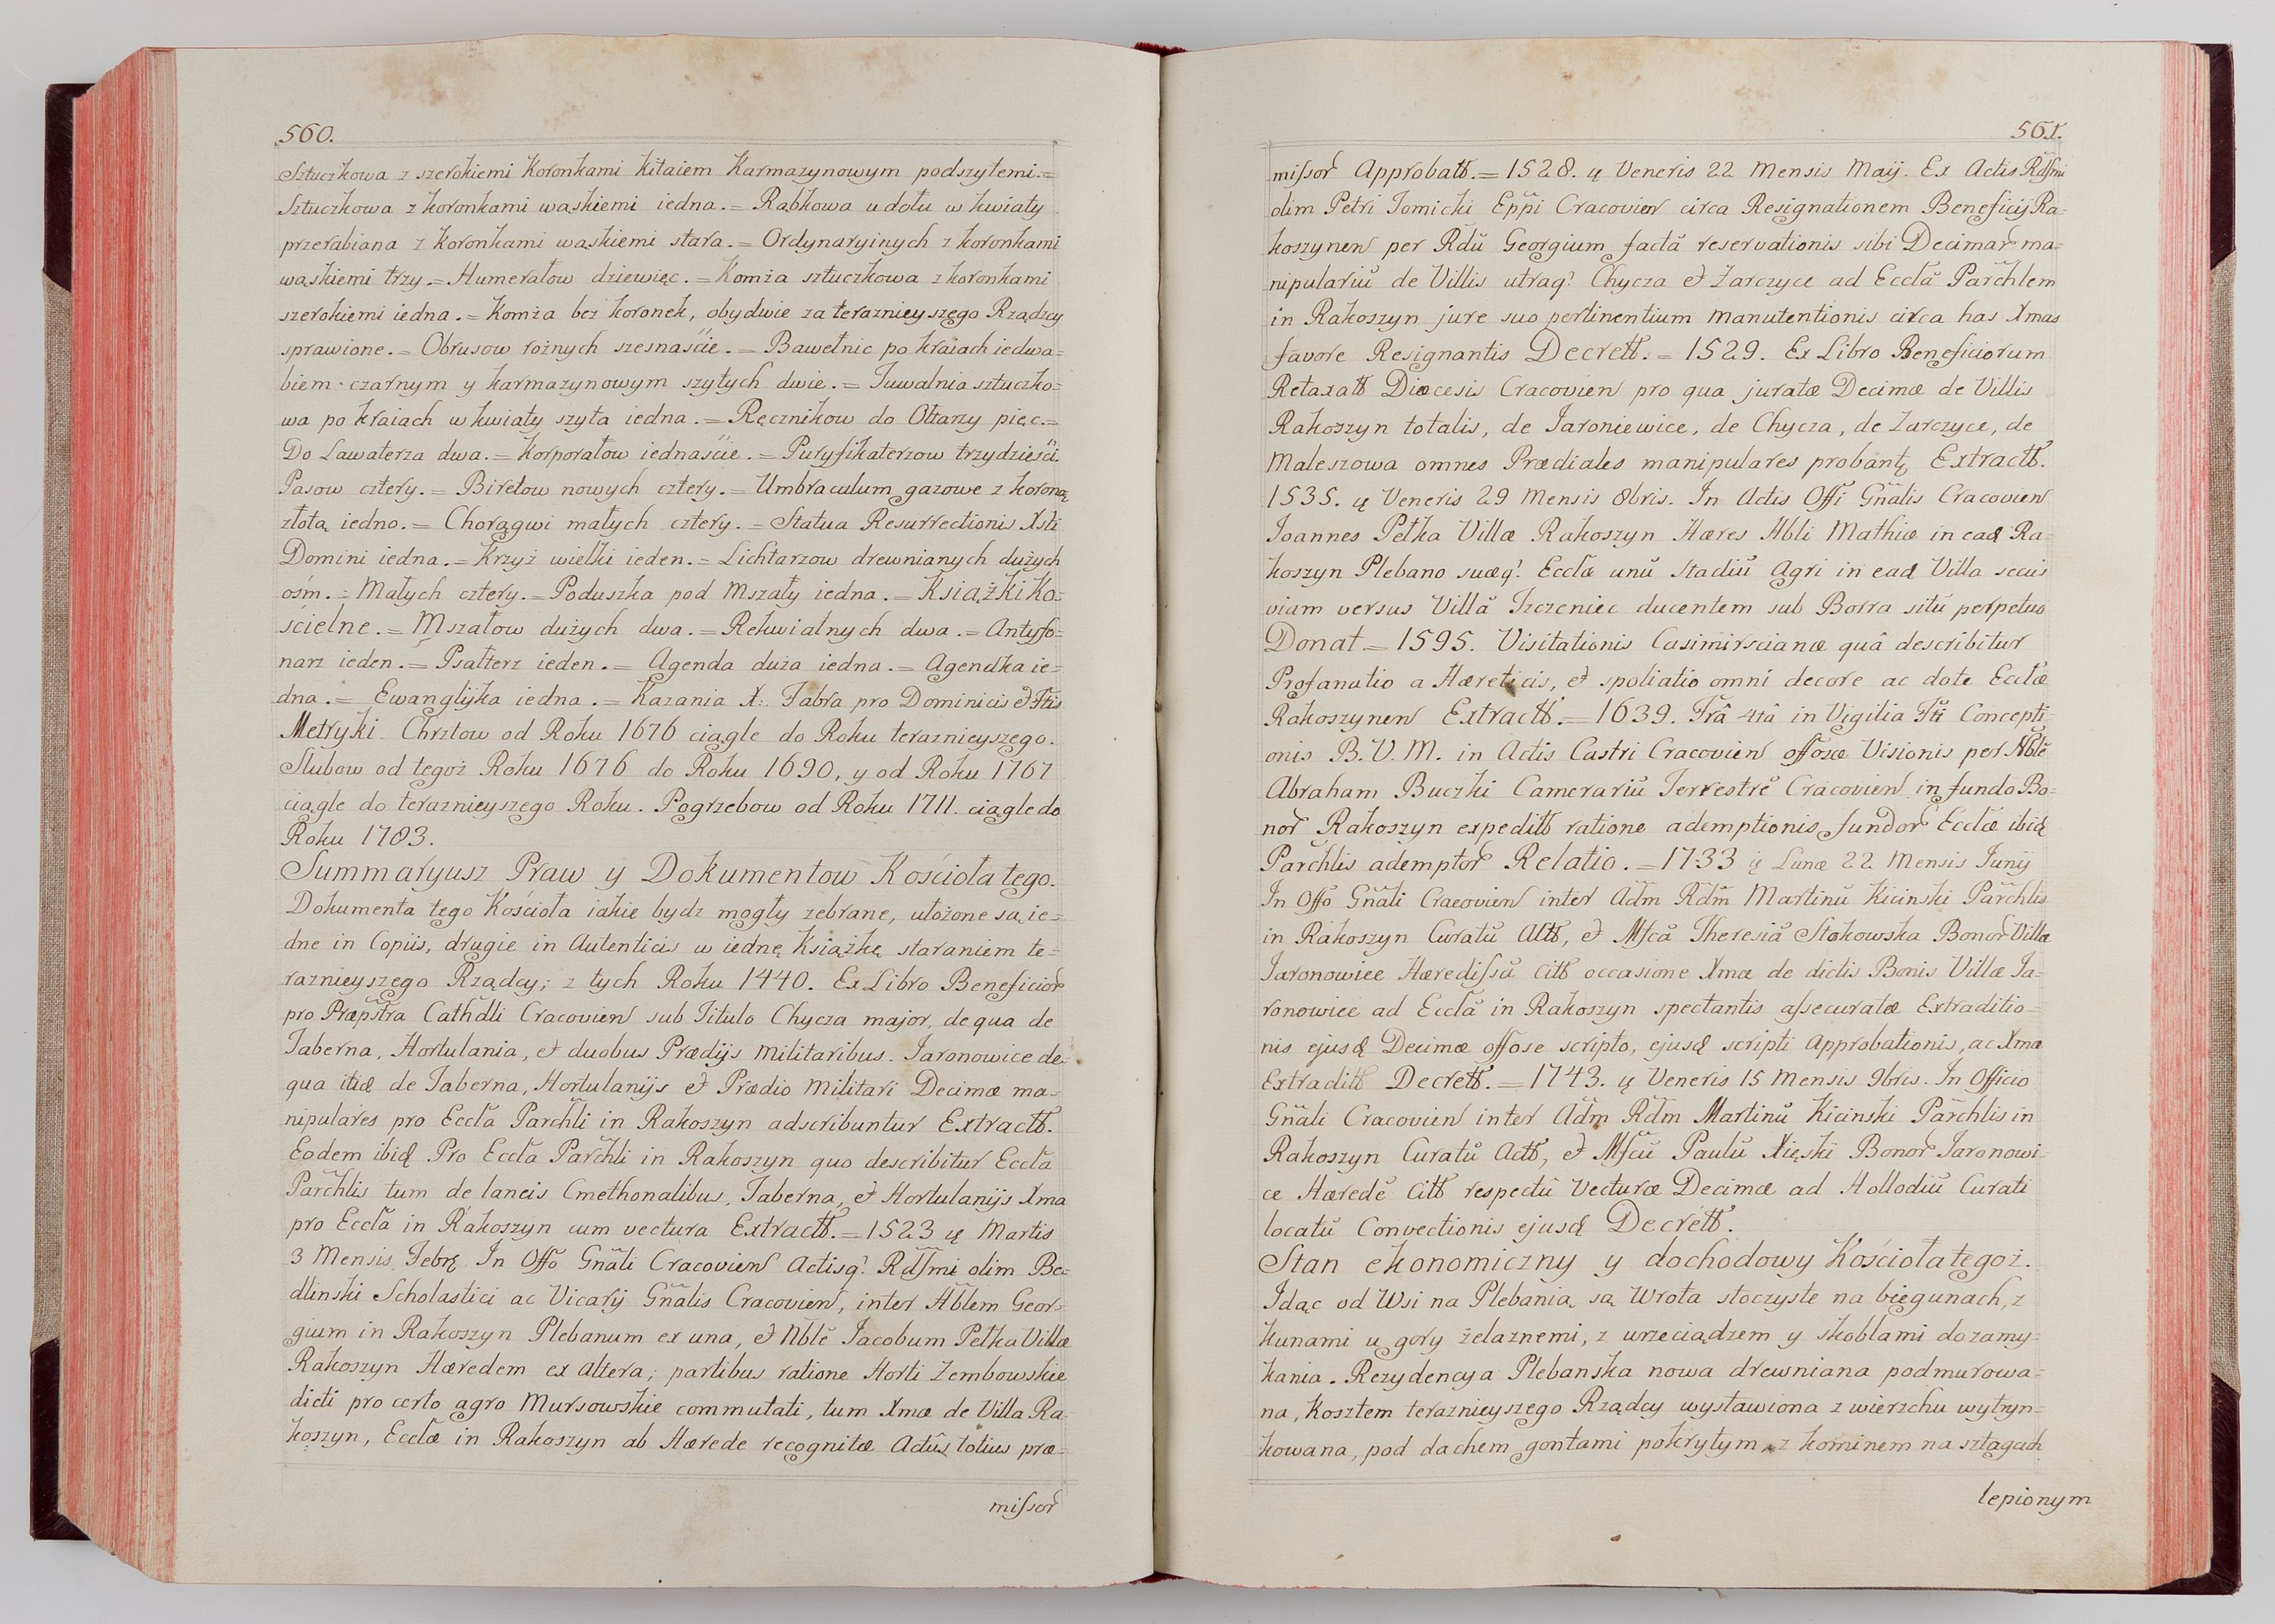 560.
Sztuczkowa z szerokiemi Koronkami kitaiem Karmazynowym podszytemi.=
Sztuczkowa z koronkami wąskiemi iedna.= Rąbkowa u dołu w kwiaty
przerabiana z koronkami wąskiemi stara.= Ordynaryinych z koronkami
wąskiemi trzy.= Humerałow dziewięc.= Komża sztuczkowa z koronkami
szerokiemi iedna.= Komża bez koronek, obydwie za teraznieyszego Rządzcy
sprawione.= Obrusow rożnych szesnaście.= Bawełnic po kraiach iedwa=
biem czarnym y karmazynowym szytych dwie.= Tuwalnia sztuczko=
wa po kraiach w kwiaty szyta iedna.= Ręcznikow do Ołtarzy pięc.=
Do Lawaterza dwa.= Korporałow iednaście.= Puryfikaterzow trzydzieści.
Pasow cztery.= Biretow nowych cztery.= Umbraculum gazowe z koroną
złotą iedno.= Chorągwi małych cztery.= Statua Resurrectionis Xsti
Domini iedna.= Krzyż wielki ieden.= Lichtarzow drewnianych dużych
ośm.= Małych cztery.= Poduszka pod Mszały iedna.= Książki Ko=
ścielne.= Mszałow dużych dwa.= Rekwialnych dwa.= Antyfo=
narz ieden.= Psałterz ieden.= Agenda duża iedna.= Agendka ie=
dna.= Ewanglijka iedna.= Kazania X. Fabra pro Dominicis et Ftis
Metryki Chrztow od Roku 1676 ciągle do Roku teraznieyszego.
Slubow od tegoż Roku 1676 do Roku 1690, y od Roku 1767
ciągle do teraznieyszego Roku. Pogrzebow od Roku 1711. ciągle do
Roku 1783.
Summaryusz Praw y Dokumentow Kościoła tego.
Dokumenta tego Kościoła iakie bydz mogły zebrane, ułożone są ie=
dne in Copiis, drugie in Autenticis w iednę Książkę staraniem te=
raznieyszego Rządcy; z tych Roku 1440. Ex Libro Beneficior
pro Præpstra Cathdli Cracovien sub Titulo Chycza major, de qua de
Taberna, Hortulania, et duobus Prædijs Militaribus. Jaronowice de
qua itid de Taberna, Hortulanijs et Prædio Militari Decimæ ma=
nipulares pro Eccla Parchli in Rakoszyn adscribuntur Extractt.
Eodem ibid Pro Eccla Parchli in Rakoszyn quo describitur Eccla
Parchlis tum de laneis Cmethonalibus, Taberna, et Hortulanijs Xma
pro Eccla in Rakoszyn cum vectura Extractt.= 1523 ię Martis
3 Mensis Febrę In Offo Gnali Cracovien Actisq. Rdssmi olim Be=
dlinski Scholastici ac Vicarij Gnalis Cracovien, inter Hblem Geor=
gium in Rakoszyn Plebanum ex una, et Nble Jacobum Pełka Villæ
Rakoszyn Hæredem ex altera; partibus ratione Horti Zembowskie
dicti pro certo agro Mursowskie commutati, tum Xmæ de Villa Ra
koszyn, Ecclæ in Rakoszyn ab Hærede recognitæ Actus totius præ=
missor
561.
missor Approbatt.= 1528. ię Veneris 22 Mensis Maij. Ex Actis Rdssmi
olim Petri Tomicki Eppi Cracovien circa Resignationem Beneficij Ra=
koszynen per Rdu Georgium facta reservationis sibi Decimar ma=
nipulariu de Villis utraq. Chycza et Zarczyce ad Eccla Parchlem
in Rakoszyn jure suo pertinentium manutentionis circa has Xmas
favore Resignantis Decrett.= 1529. Ex Libro Beneficiorum
Retaxatt Diæcesis Cracovien pro qua juratæ Decimæ de Villis
Rakoszyn totalis, de Jaroniewice, de Chycza, de Zarczyce, de
Maleszowa omnes Prædiales manipulares probantę Extractt.
1535. ię Veneris 29 Mensis 8bris. In Actis Offi Gnalis Cracovien
Joannes Pełka Villæ Rakoszyn Hæres Hbli Mathiæ in ead Ra=
koszyn Plebano suæq. Ecclæ unu stadiu Agri in ead Villa secus
viam versus Villa Tzczeniec ducentem sub Borra situ perpetuo
Donat= 1595. Visitationis Casimirscianæ qua describitur
Profanatio a Hæreticis, et spoliatio omni decore ac dote Ecclæ
Rakoszynen Extractt.= 1639. Fra 4ta in Vigilia Fti Concepti
onis B. V. M. in Actis Castri Cracovien offosæ Visionis per Nble
Abraham Buczki Camerariu Terrestre Cracovien in fundo Bo=
nor Rakoszyn expeditt ratione ademptionis fundor Ecclæ ibid
Parchlis ademptor Relatio.= 1733 ię Lunæ 22 Mensis Junij
In Offo Gnali Cracovien inter Adm Rdm Martinu Kicinski Parchlis
in Rakoszyn Curatu Actt, et Mfca Theresia Stokowska Bonor Villæ
Jaronowice Hæredissa Citt occasione Xmæ de dictis Bonis Villæ Ja=
ronowice ad Eccla in Rakoszyn spectantis assecuratæ Extraditio=
nis ejusd Decimæ offose scripto, ejusd scripti Approbationis, ac Xmæ
Extraditt Decrett.= 1743. ię Veneris 15 Mensis 9bris. In Officio
Gnali Cracovien inter Adm Rdm Martinu Kicinski Parchlis in
Rakoszyn Curatu Actt, et Mfcu Paulu Xięski Bonor Jaronowi=
ce Hærede Citt respectu Vecturæ Decimæ ad Hollodiu Curati
locatu Convectionis ejusd Decrett.
Stan ekonomiczny y dochodowy Kościoła tegoż.
Idąc od Wsi na Plebanią są Wrota stoczyste na biegunach, z
kunami u gory żelaznemi, z wrzeciądzem y skoblami do zamy=
kania. Rezydencya Plebanska nowa drewniana podmurowa=
na, Kosztem teraznieyszego Rządcy wystawiona z wierzchu wytryn=
kowana, pod dachem gontami pokrytym z kominem na sztagach
lepionym